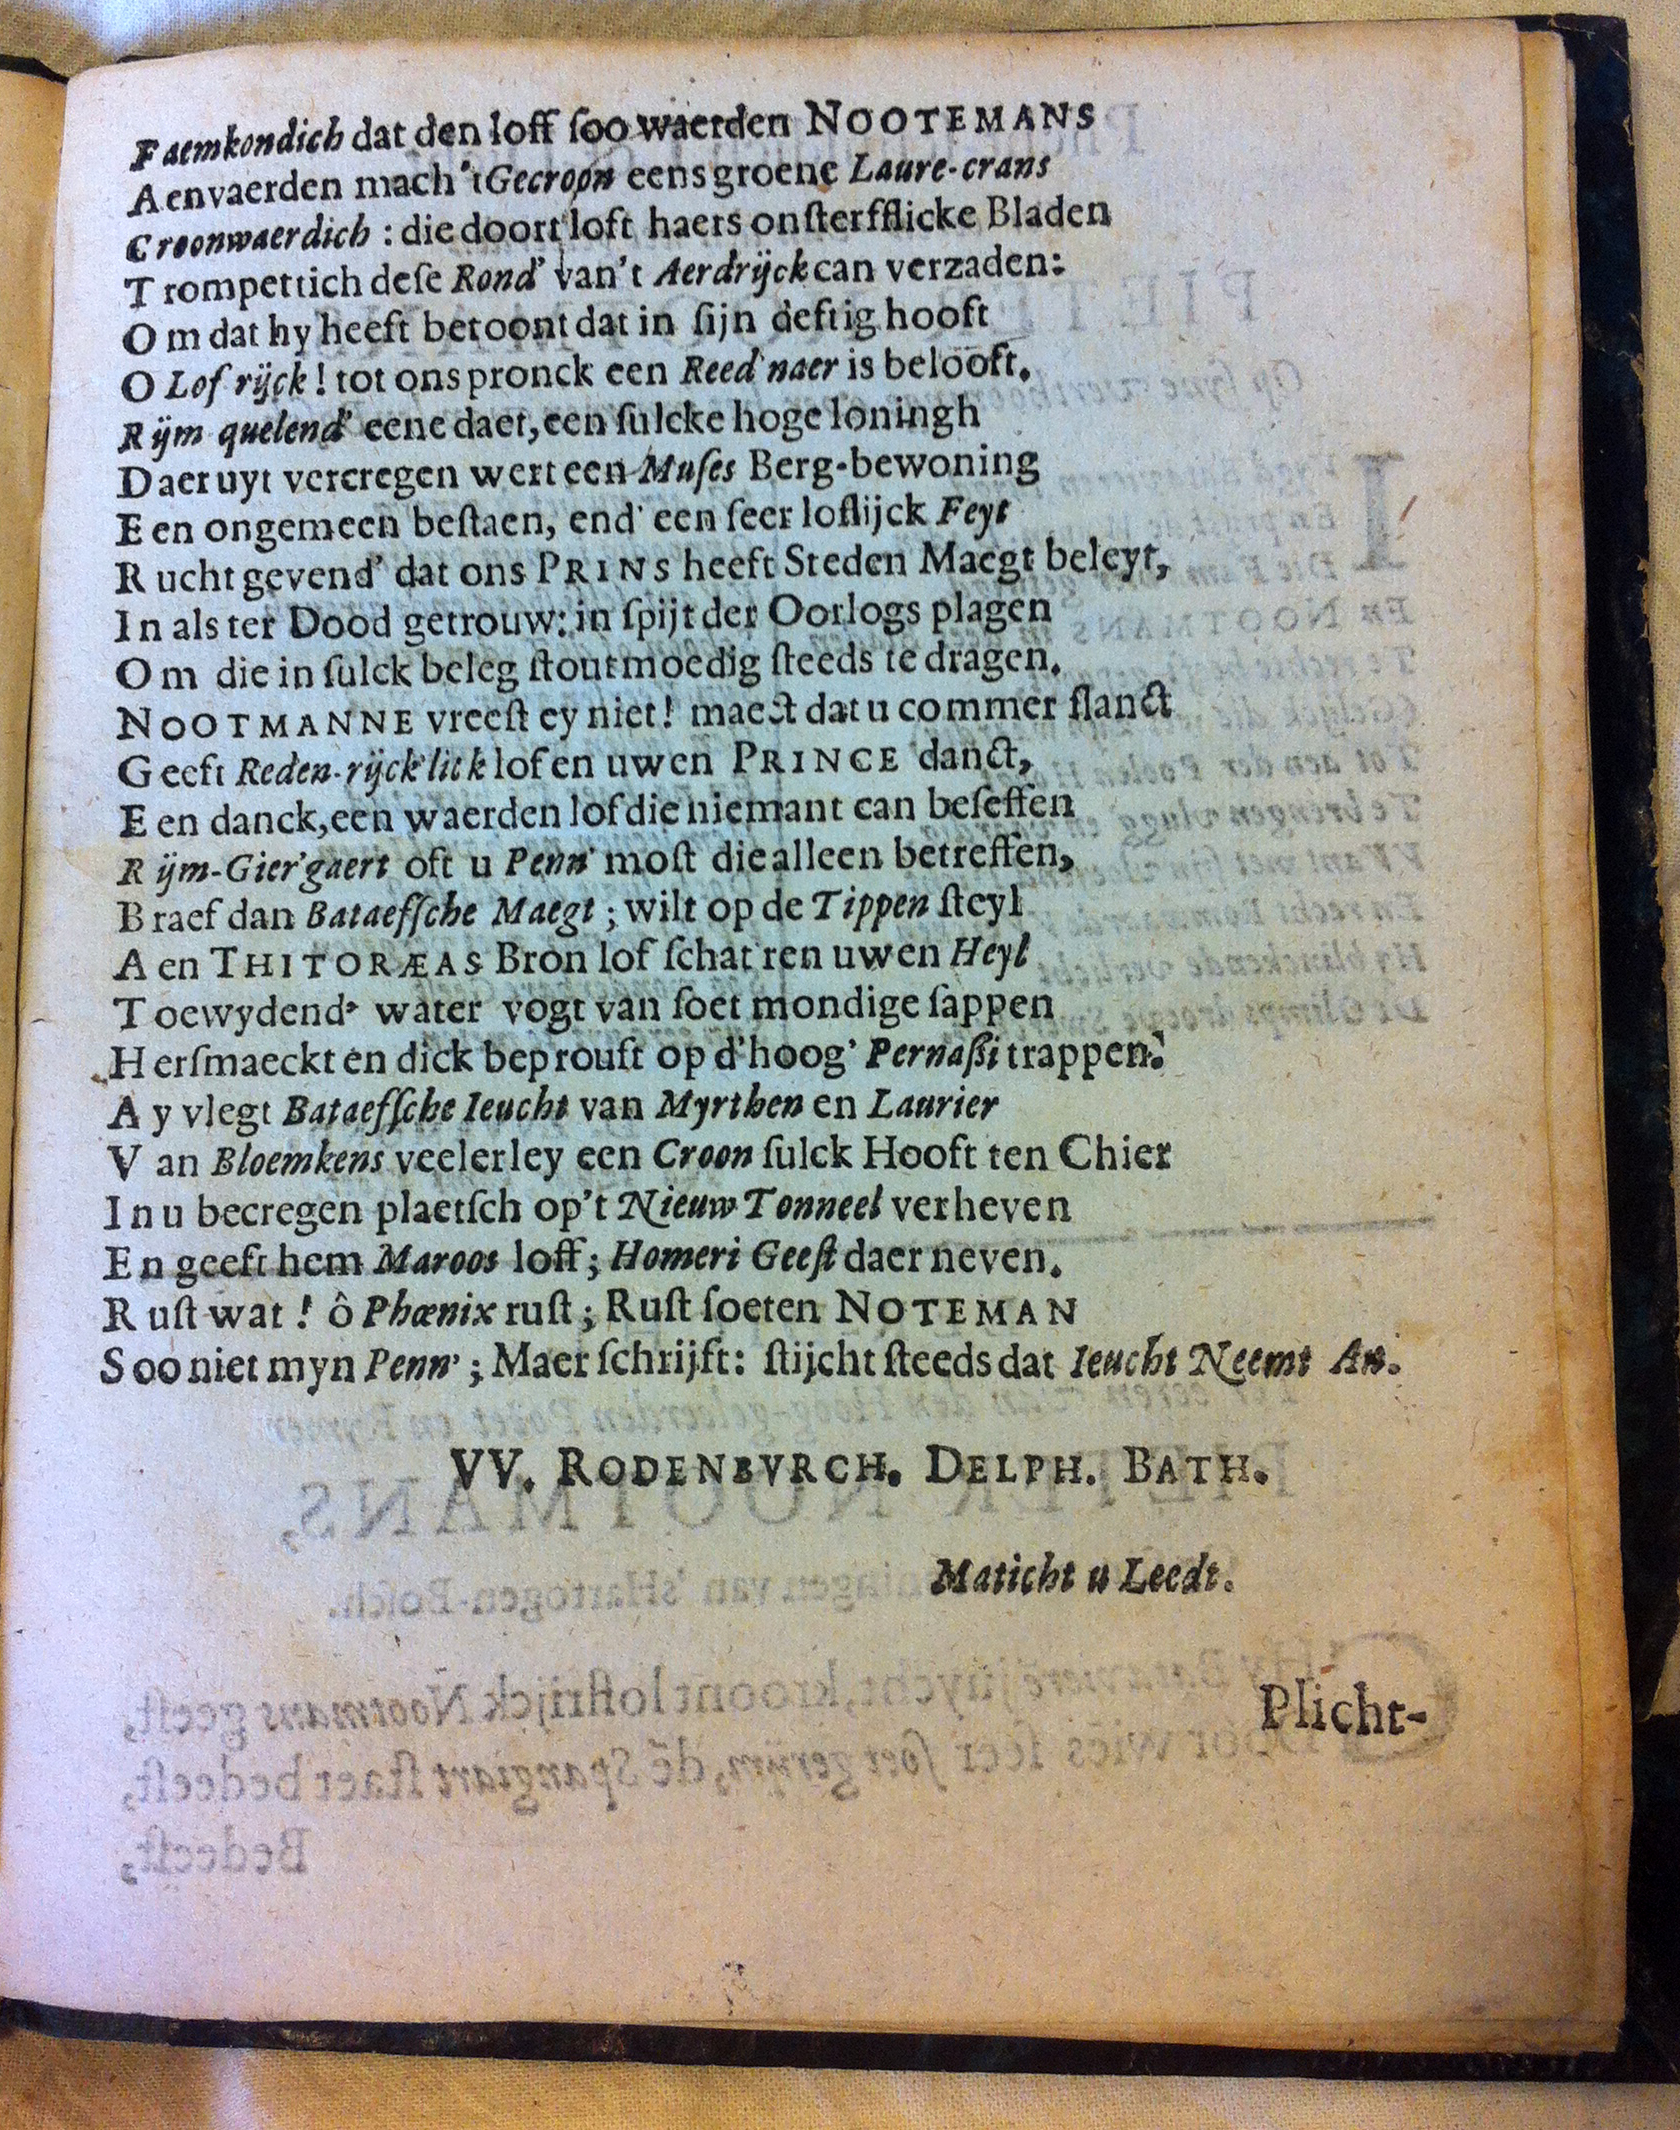 Faemkondich dat den loff ſoo waerden NOOTEMANS
Aenvaerden mach 't Gecroon eens groene Laure-crans
Croonwaerdich : die doort loft haers onſterfflicke Bladen
Trompettich deſe Rond' van't Aerdrijck can verzaden:
Om dat hy heeft betoont dat in ſijn deftig hooft
O Lof rijck! tot ons pronck een Reed'naer is belooft.
Rijm quelend' eene daet, een ſulcke hoge loningh
Daer uyt vercregen wert een Muſes Berg-bewoning
Een ongemeen beſtaen, end' een ſeer loflijck Feyt
Rucht gevend' dat ons PRINS heeft Steden Maegt beleyt,
In als ter Dood getrouw: in ſpijt der Oorlogs plagen
Om die in ſulck beleg ſtoutmoedig ſteeds te dragen.
NOOTMANNE vreeſt ey niet! maect dat u commer ſlanct
Geeft Reden-rijck'lick lof en uwen PRINCE danct,
Een danck, een waerden lof die niemant can beſeffen
Rijm-Gier'gaert oft u Penn' moſt die alleen betreffen,
Braef dan Bataefſche Maegt ; wilt op de Tippen ſteyl
Aen THITORÆAS Bron lof ſchat'ren uwen Heyl
Toewydend' water vogt van ſoet mondige ſappen
Herſmaeckt en dick beprouft op d'hoog' Pernaßi trappen.
Ay vlegt Bataefſche Ieucht van Myrthen en Laurier
Van Bloemkens veelerley een Croon ſulck Hooft ten Chier
In u becregen plaetſch op't Nieuw Tonneel verheven
En geeft hem Maroos loff ; Homeri Geeſt daer neven.
Ruſt wat ! ô Phœnix ruſt ; Ruſt ſoeten NOTEMAN
Soo niet myn Penn' ; Maer ſchrijft: ſtijcht ſteeds dat Ieucht Neemt An.
VV. RODENBVRCH. DELPH. BATH.
Maticht u Leedt.
Plicht-